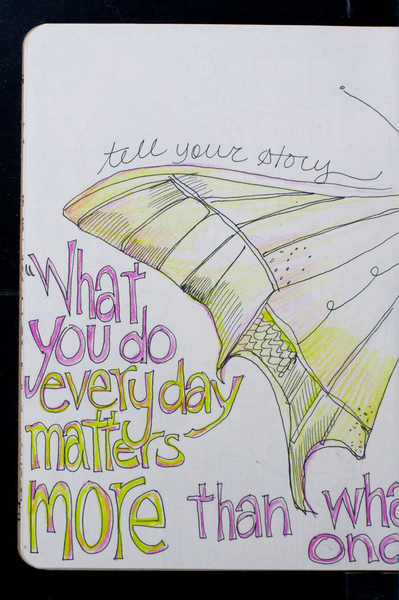 tell your story
"What
you do
every day
matters
more than